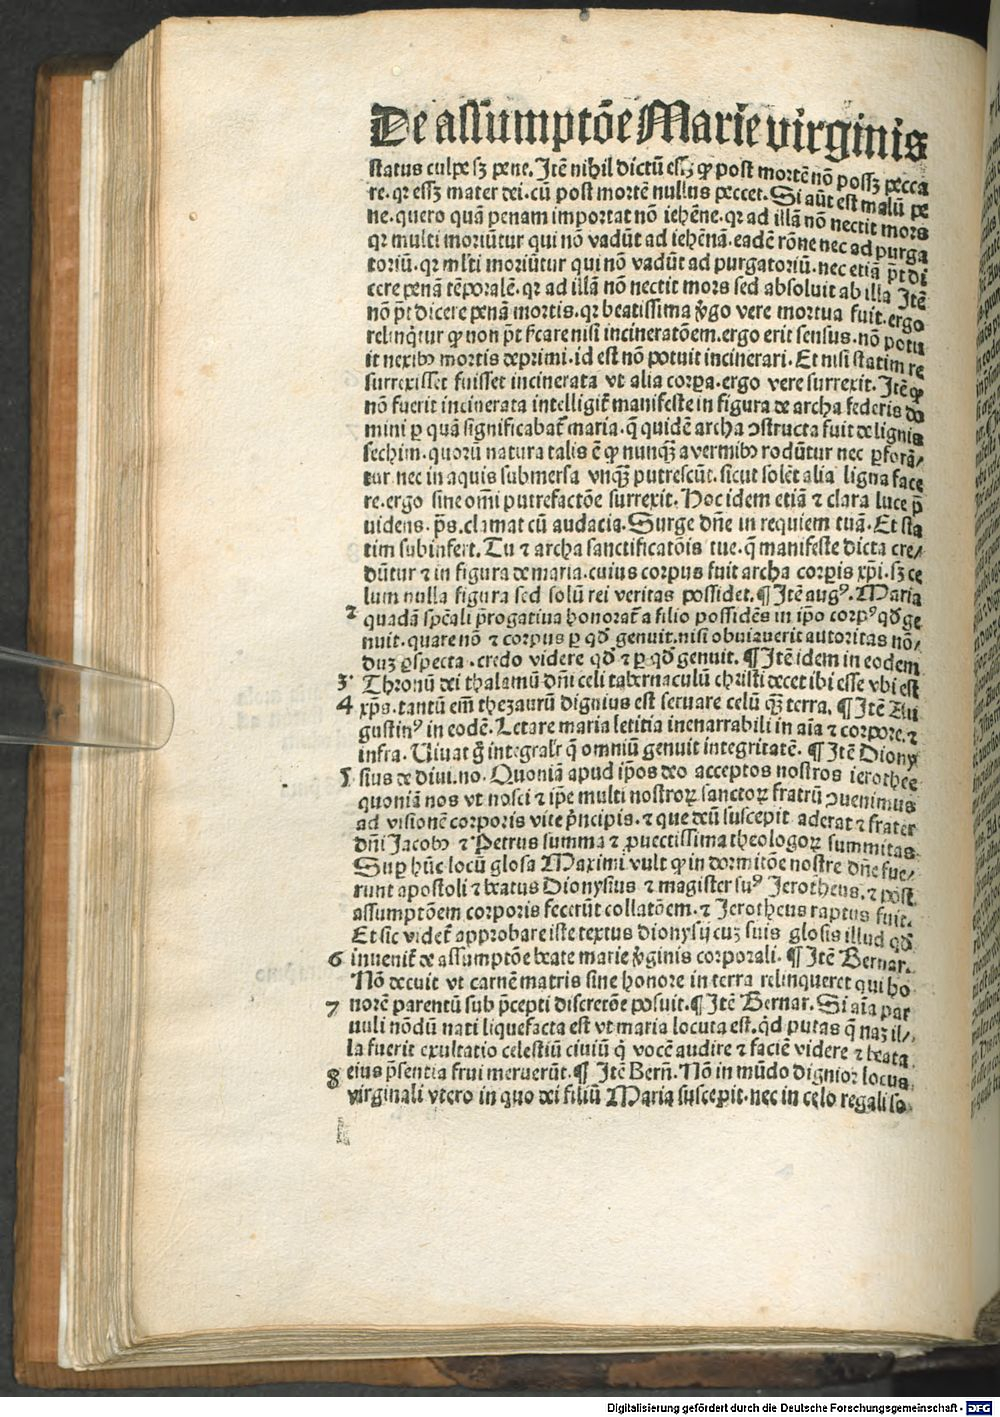 De assumptōe Marie virginis
status culpe sꝫ pene. Itē nihil dictū eēt ꝙ post mortē nō possꝫ pecca
re. qꝛ essꝫ mater dei. cū post mortē nullus peccet. Si aūt est malū pe
ne. quero quā penam importat nō iehēne. qꝛ ad illā nō nectit mors
qꝛ multi moriūtur qui nō vadūt ad iehēnā. eadē rōne nec ad purga
toriū. qꝛ ml'ti moriūtur qui nō vadūt ad purgatoriū. nec etiā p̄t di
cere penā tēporalē. qꝛ ad illā nō nectit mors sed absoluit ab illa Itē
nō p̄t dicere penā mortis. qꝛ beatissima v̓go vere mortua fuit. ergo
relinq̇tur ꝙ non p̄t fcare nisi incineratōem. ergo erit sensus. nō potu
it nexibꝰ mortis deprimi. id est nō potuit incinerari. Et nisi statim re
surrexisset fuisset incinerata vt alia corpa. ergo vere surrexit. Itē ꝙ
nō fuerit incinerata intelligit̄ manifeste in figura de archa federis do
mini ꝑ quā significabat̄ maria. q̄ quidē archa ↄstructa fuit de lignis
sechim. quorū natura talis ē ꝙ nunqꝫ a vermibꝰ rodūtur nec ꝑforā⸗
tur nec in aquis submersa vnqꝫ putrescūt. sicut solēt alia ligna face
re. ergo sine om̄i putrefactōe surrexit. Hoc idem etiā ⁊ clara luce p̄
uidens. p̄s. clamat cū audacia. Surge dn̄e in requiem tuā. Et sta
tim subinfert. Tu ⁊ archa sanctificatōis tue. q̄ manifeste dicta cre⸗
dūtur ⁊ in figura de maria. cuius corpus fuit archa corpis xp̄i. sꝫ ce
lum nulla figura sed solū rei veritas possidet. ¶ Itē augꝰ. Maria
2 quadā spēcali p̄rogatiua honorat̄ a filio possidēs in ip̄o corpꝰ qd̓ ge
nuit. quare nō ⁊ corpus ꝑ qd̓ genuit. nisi obuiauerit autoritas nō⸗
duꝫ ꝑspecta. credo videre qd̓ ⁊ ꝑ qd̓ genuit. ¶ Itē idem in eodem
3 Thronū dei thalamū dn̄i celi tabernaculū christi decet ibi esse vbi est
4 xp̄s. tantū em̄ thezaurū dignius est seruare celū qꝫ terra. ¶ Itē Au
gustinꝰ in eodē. Letare maria letitia inenarrabili in aīa ⁊ corpore. ⁊
infra. Viuat g̊ integralr̄ q̄ omniū genuit integritatē. ¶ Itē Diony
5 sius de diui. no. Quoniā apud ip̄os deo acceptos nostros ierothee
quoniā nos vt nosci ⁊ ip̄e multi nostroꝝ sanctoꝝ fratrū ↄuenimus
ad visionē corporis vite p̄ncipis. ⁊ que deū suscepit aderat ⁊ frater
dn̄i Jacobꝰ ⁊ Petrus summa ⁊ ꝓuectissima theologoꝝ summitas
Suꝑ hūc locū glosa Maximi vult ꝙ in dormitōe nostre dn̄e fue⸗
runt apostoli ⁊ beatus Dionysius ⁊ magister suꝰ Jerotheus. ⁊ post
assumptōem corporis fecerūt collatōem. ⁊ Jerotheus raptus fuit.
Et sic videt̄ approbare iste textus dionysij cuꝫ suis glosis illud qd̓
6 inuenit̄ de assumptōe beate marie v̓ginis corporali. ¶ Itē Bernar.
Nō decuit vt carnē matris sine honore in terra relinqueret qui ho
7 norē parentū sub p̄cepti discretōe posuit. ¶ Itē Bernar. Si aīa par
uuli nōdū nati liquefacta est vt maria locuta est. qd̓ putas q̄ naꝫ il⸗
la fuerit exultatio celestiū ciuiū q̄ vocē audire ⁊ faciē videre ⁊ beata
8 eius p̄sentia frui meruerūt. ¶ Itē Berū. Nō in mūdo dignior locus
virginali vtero in quo dei filiū Maria suscepit. nec in celo regali so
Digitalisierung gefördert durch die Deutsche Forschungsgemeinschaft - DFG